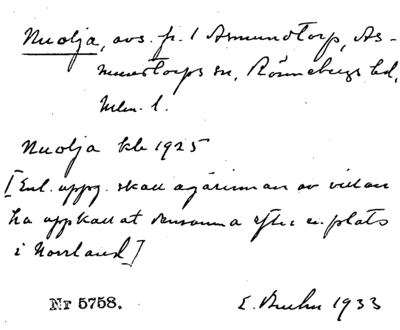 Nuolja, avs. fr. 1 Asmundtorp, As-
mundtorps sn, Rönnebergs hd,
Mlm. l.
Nuolja kb 1925
[Enl. uppg. skall ägarinnan av villan
ha uppkallat densamma efter en plats
i Norrland]
Nr 5758. E. Bruhn 1933